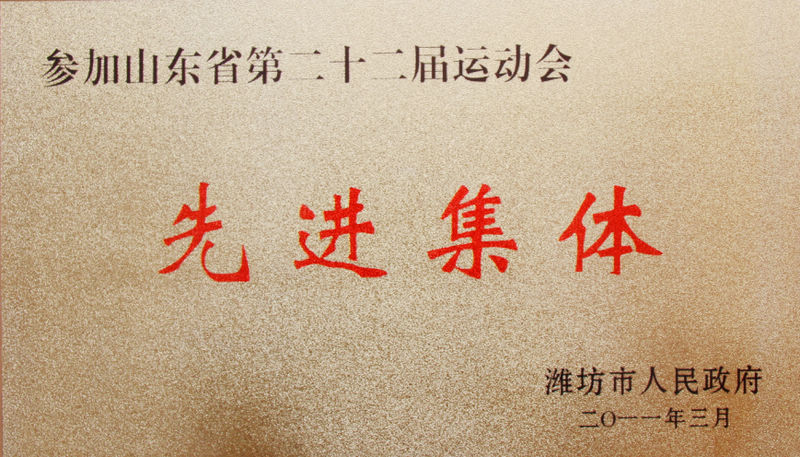 参加山东省第二十二届运动会
先进集体
潍坊市人民政府
二〇一一年三月